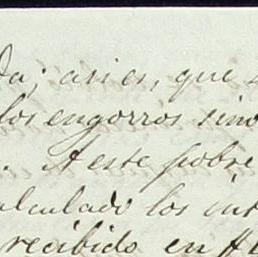 da; asi es, que
los engorros sino
. A este pobre
alculado los int
recibido en